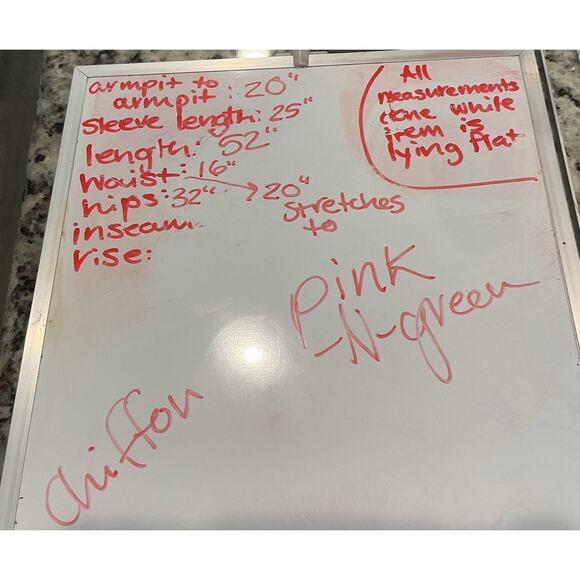 armpit to
armpit: 20"
sleeve length: 25"
length: 52"
waist: 16"
hips: 32" → 20"
stretches
to
inseam
rise:
All
measurements
done while
item is
lying flat
Pink
-N-green
Chiffon